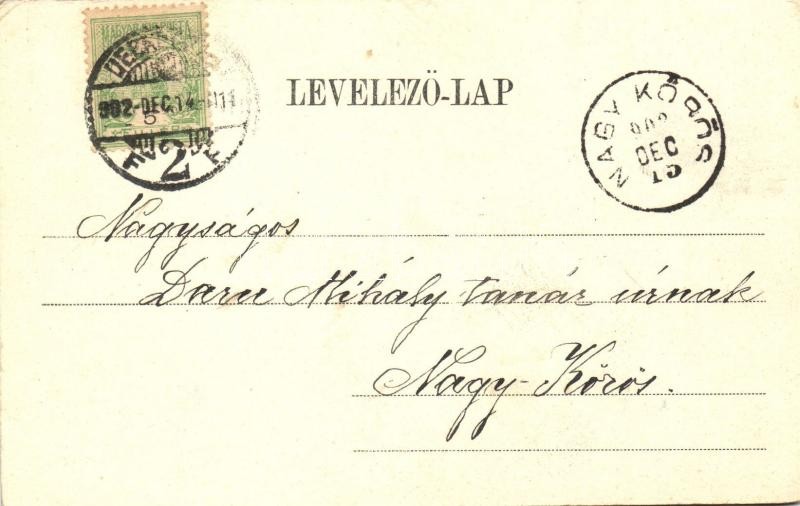 MAGYAR POSTA
902-DEC.14
5
2
LEVELEZŐ-LAP
NAGY KŐRÖS
902
DEC
15
Nagyságos
Daru Mihály tanár úrnak
Nagy-Kőrös.